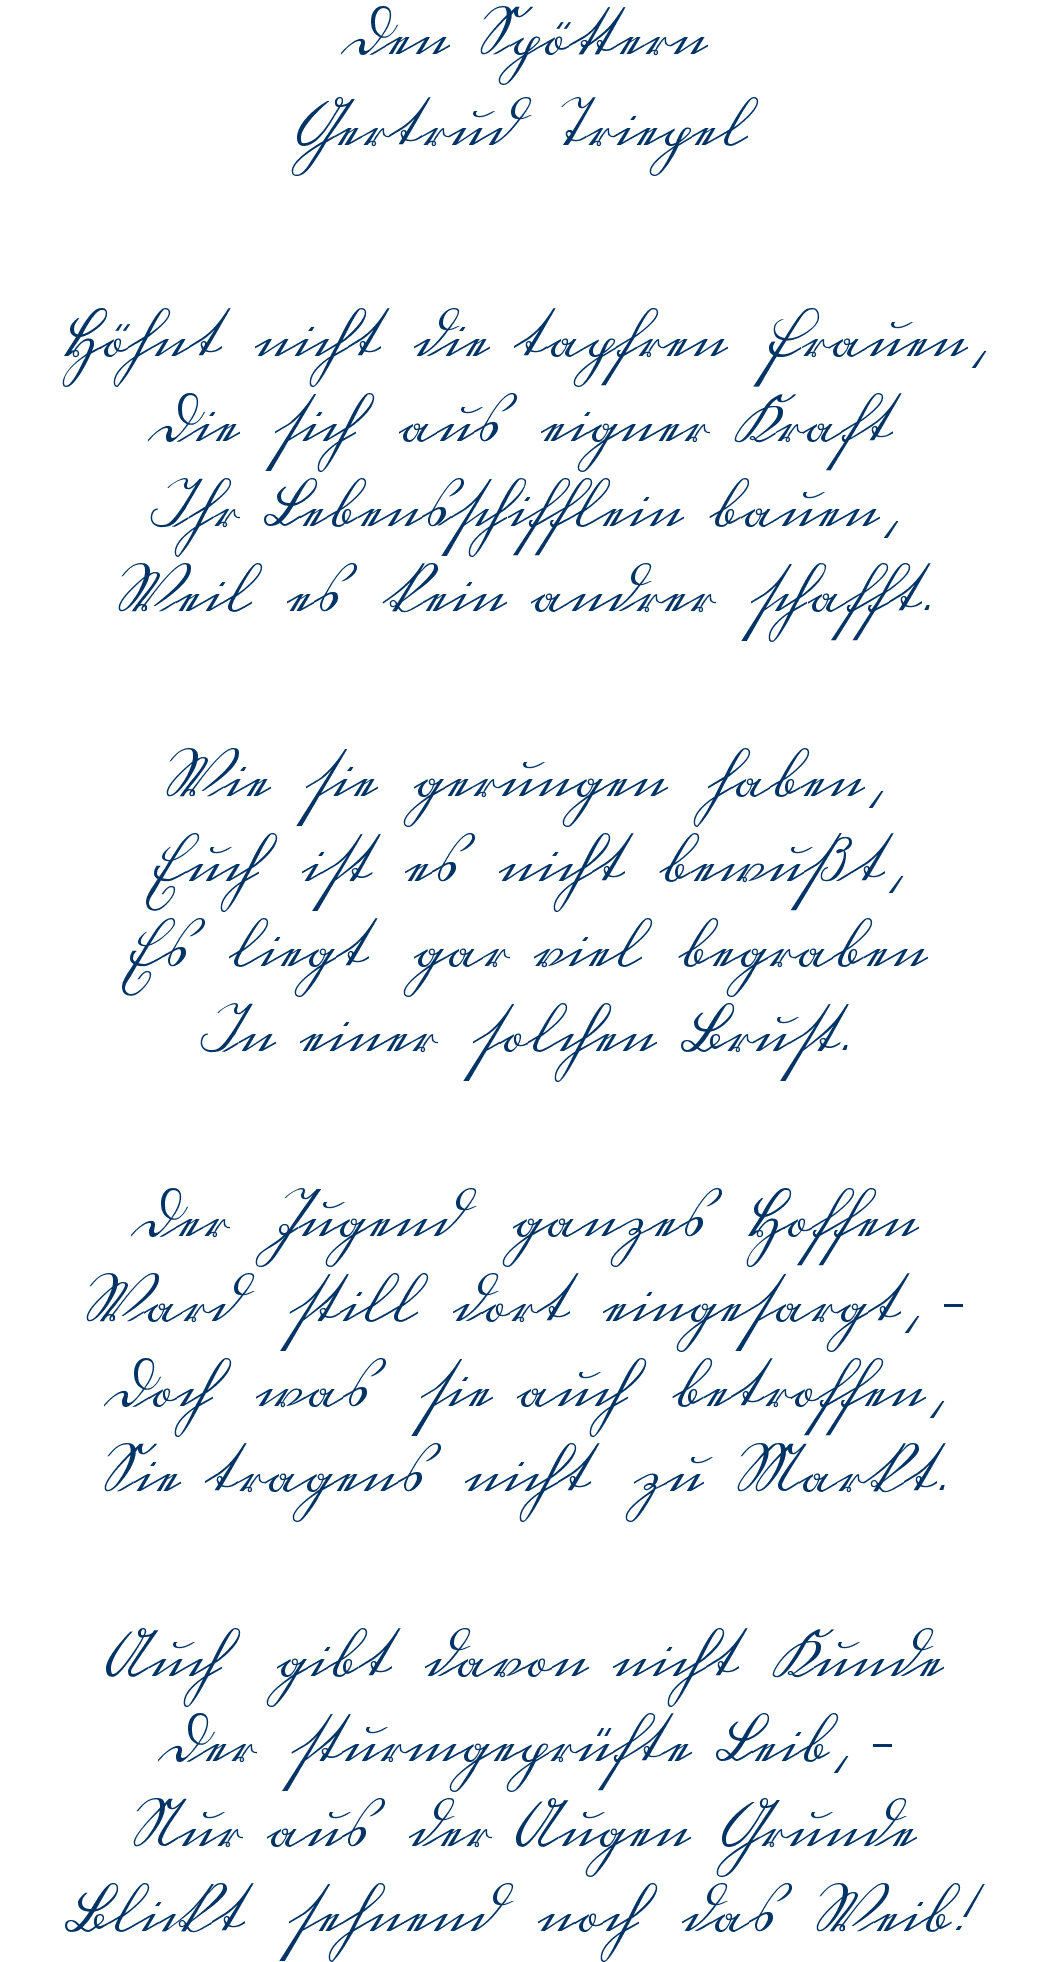 Den Spöttern
Gertrud Triepel
Höhnt nicht die tapfren Frauen,
Die sich aus eigner Kraft
Ihr Lebensschifflein bauen,
Weil es kein andrer schafft.
Wie sie gerungen haben,
Euch ist es nicht bewußt,
Es liegt gar viel begraben
In einer solchen Brust.
Der Jugend ganzes Hoffen
Ward still dort eingesargt, –
Doch was sie auch betroffen,
Sie tragens nicht zu Markt.
Auch gibt davon nicht Kunde
Der sturmgeprüfte Leib, –
Nur aus der Augen Grunde
Blickt sehnend noch das Weib!